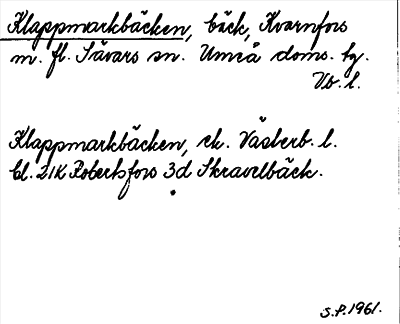 Klappmarkbäcken, bäck, Kvarnfors
m. fl. Sävars sn. Umeå doms. bg.
Vb. l.
Klappmarkbäcken, ek. Västerb. l.
bl. 21K Robertsfors 3d Skravelbäck.
S.P. 1961.